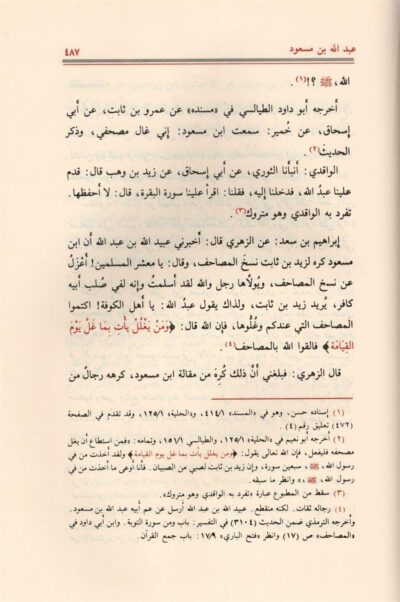 عبد الله بن مسعود ٤٨٧
الله، ﷺ ؟!(١).
أخرجه أبو داود الطيالسي في «مسنده» عن عمرو بن ثابت، عن أبي
إسحاق، عن خُمير: سمعت ابن مسعود: إني غال مصحفي، وذكر
الحديث(٢).
الواقدي: أنبأنا الثوري، عن أبي إسحاق، عن زيد بن وهب قال: قدم
علينا عبدُ الله، فدخلنا إليه، فقلنا: اقرأ علينا سورة البقرة، قال: لا أحفظها.
تفرد به الواقدي وهو متروك(٣).
إبراهيم بن سعد: عن الزهري قال: أخبرني عبيد الله بن عبد الله أن ابن
مسعود كره لزيد بن ثابت نسخَ المصاحف، وقال: يا معشر المسلمين! أُعْزَلُ
عن نسخ المصاحف، ويُولّاها رجل والله لقد أسلمتُ وإنه لفي صُلب أبيه
كافر، يُريد زيد بن ثابت، ولذاك يقول عبدُ الله: يا أهل الكوفة! اكتموا
المصاحف التي عندكم وغُلُّوها، فإن الله قال: ﴿وَمَنْ يَغْلُلْ يأت بِمَا غَلَّ يَوْمَ
القِيَامَة﴾ فالقوا الله بالمصاحف(٤).
قال الزهري: فبلغني أنَّ ذلك كُرِهَ من مقالة ابن مسعود، كرهه رجالٌ من
(١) إسناده حسن، وهو في «المسند» ٤١٤/١، و«الحلية» ١٢٥/١، وقد تقدم في الصفحة
(٤٧٢) تعليق رقم (٤).
(٢) أخرجه أبو نعيم في «الحلية» ١٢٥/١، والطيالسي ١٥١/١ وتمامه: «فمن استطاع أن يغل
مصحفه فليفعل، فإن الله تعالى يقول: ﴿ومن يغلل يأت بما غل يوم القيامة﴾ ولقد أخذت من في
رسول الله، ﷺ، سبعين سورة، وإن زيد بن ثابت لصبي من الصبيان. فأنا أوعى ما أخذت من في
رسول الله، ﷺ،» وانظر ما سبقه.
(٣) سقط من المطبوع عبارة «تفرد به الواقدي وهو متروك».
(٤) رجاله ثقات. لكنه منقطع. عبيد الله بن عبد الله أرسل عن عم أبيه عبد الله بن مسعود.
وأخرجه الترمذي ضمن الحديث (٣١٠٤) في التفسير: باب ومن سورة التوبة. وابن أبي داود في
«المصاحف» ص (١٧) وانظر «فتح الباري» ١٧/٩ باب جمع القرآن.